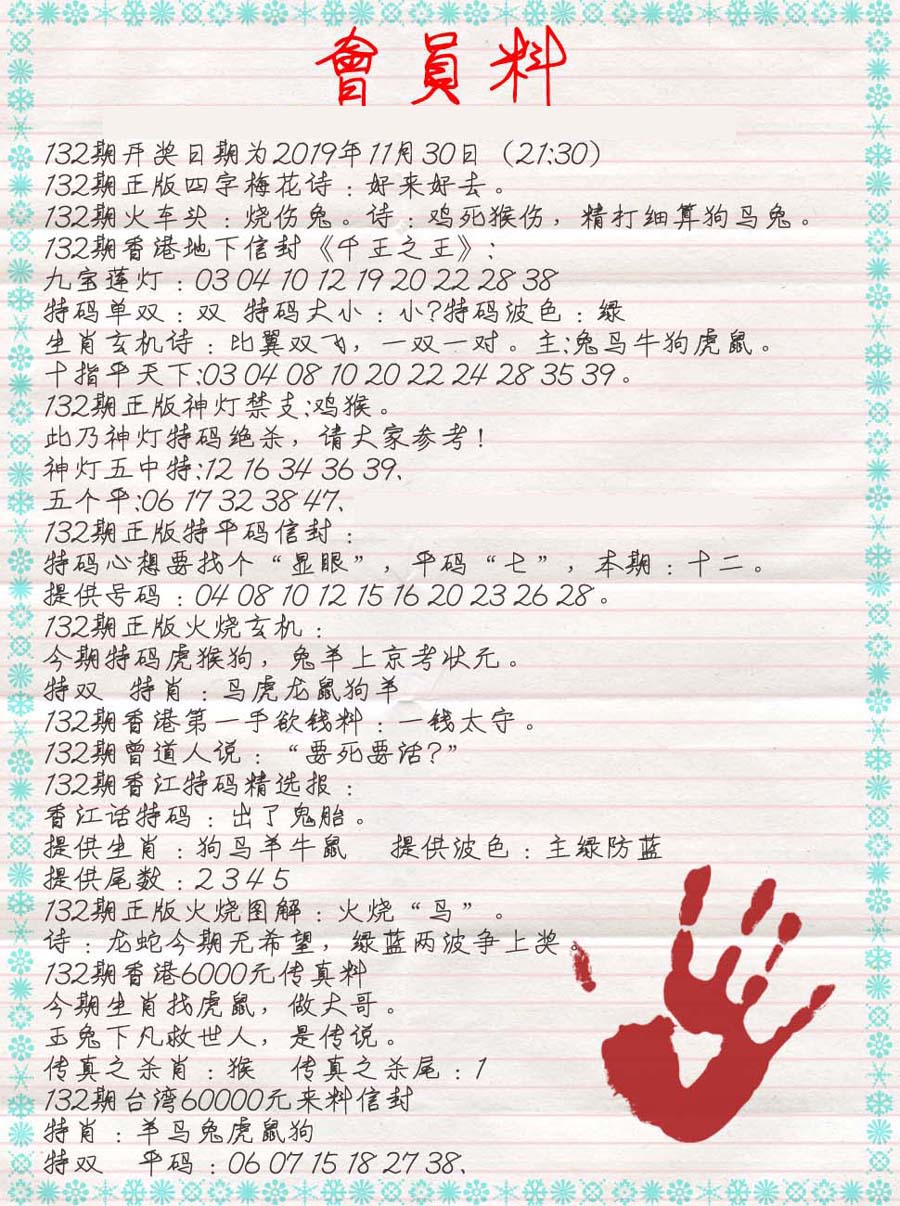 會員料
132期开奖日期为2019年11月30日（21:30）
132期正版四字梅花诗：好来好去。
132期火车头：烧伤兔。诗：鸡死猴伤，精打细算狗马兔。
132期香港地下信封《千王之王》：
九宝莲灯：03 04 10 12 19 20 22 28 38
特码单双：双 特码大小：小?特码波色：绿
生肖玄机诗：比翼双飞，一双一对。主:兔马牛狗虎鼠。
十指平天下:03 04 08 10 20 22 24 28 35 39。
132期正版神灯禁支:鸡猴。
此乃神灯特码绝杀，请大家参考！
神灯五中特:12 16 34 36 39、
五个平:06 17 32 38 47、
132期正版特平码信封：
特码心想要找个“显眼”，平码“七”，本期：十二。
提供号码：04 08 10 12 15 16 20 23 26 28。
132期正版火烧玄机：
今期特码虎猴狗，兔羊上京考状元。
特双 特肖：马虎龙鼠狗羊
132期香港第一手欲钱料：一钱太守。
132期曾道人说：“要死要活?”
132期香江特码精选报：
香江话特码：出了鬼胎。
提供生肖：狗马羊牛鼠 提供波色：主绿防蓝
提供尾数：2 3 4 5
132期正版火烧图解：火烧“马”。
诗：龙蛇今期无希望，绿蓝两波争上奖。
132期香港6000元传真料
今期生肖找虎鼠，做大哥。
玉兔下凡救世人，是传说。
传真之杀肖：猴 传真之杀尾：1
132期台湾60000元来料信封
特肖：羊马兔虎鼠狗
特双 平码：06 07 15 18 27 38、